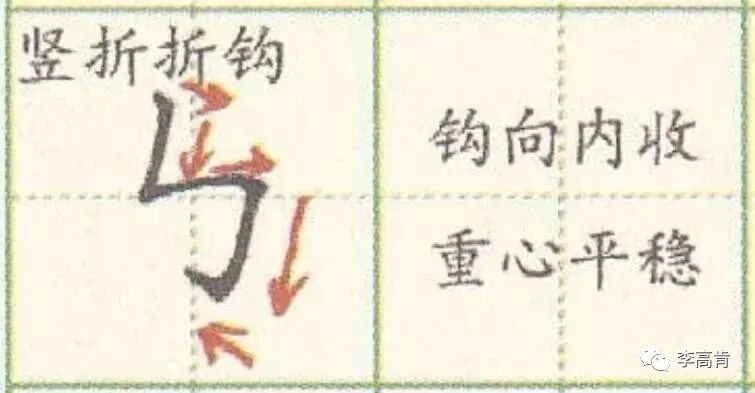 竖折折钩
钩向内收
重心平稳
李高肯